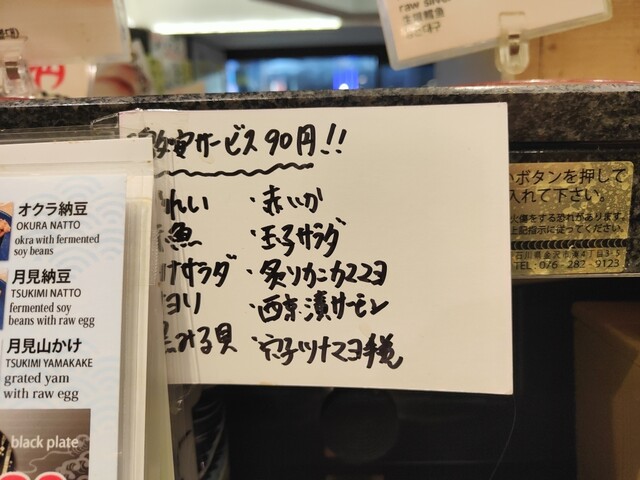 raw silver
大)
サービス90円!!
れい ・赤いか
魚 ・玉子サラダ
サラダ ・炙りカニカママヨ
ヨリ ・西京漬サーモン
みる貝 ・穴子ツナマヨ手巻
オクラ納豆
OKURA NATTO
okra with fermented
soy beans
月見納豆
TSUKIMI NATTO
fermented soy
beans with raw egg
月見山かけ
TSUKIMI YAMAKAKE
grated yam
with raw egg
black plate
ボタンを押して
入れて下さい。
火傷をする恐れがあります。
上記指示に従ってください。
石川県金沢市湊4丁目3-5
TEL:076-282-9123